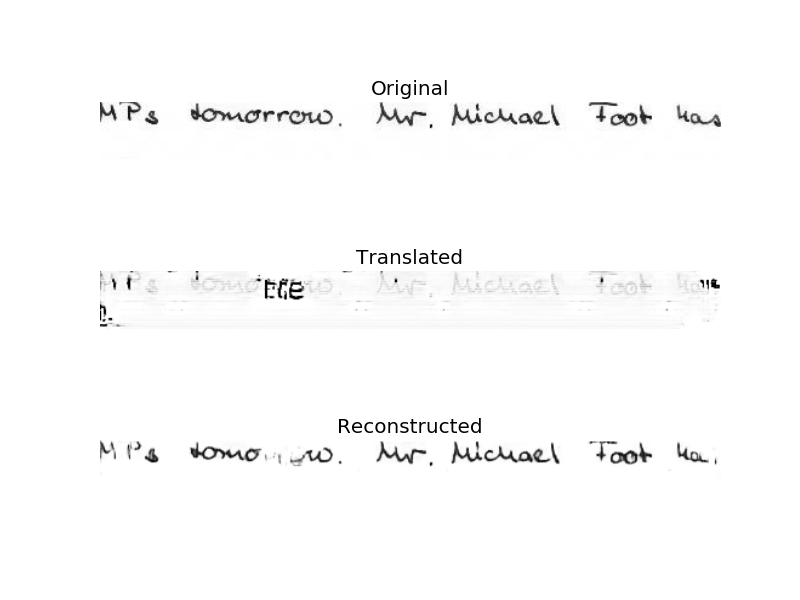 Original
MPs tomorrow. Mr. Michael Foot has
Translated
MPs Mr. Michael Foot
Reconstructed
MPs Mr. Michael Foot